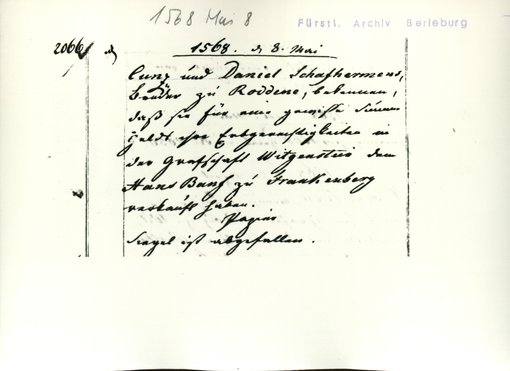 1568 Mai 8
Fürstl. Archiv Berleburg
2066
1568. d. 8. Mai
Cunz und Daniel Schafhermens,
Brüder zu Roddene, bekennen,
daß sie für eine gewisse Summe
Geldt ihre Erbgerechtigkeiten in
der Grafschaft Witgenstein dem
Hans Banf zu Frankenberg
verkauft haben.
Papier
Siegel ist abgefallen.